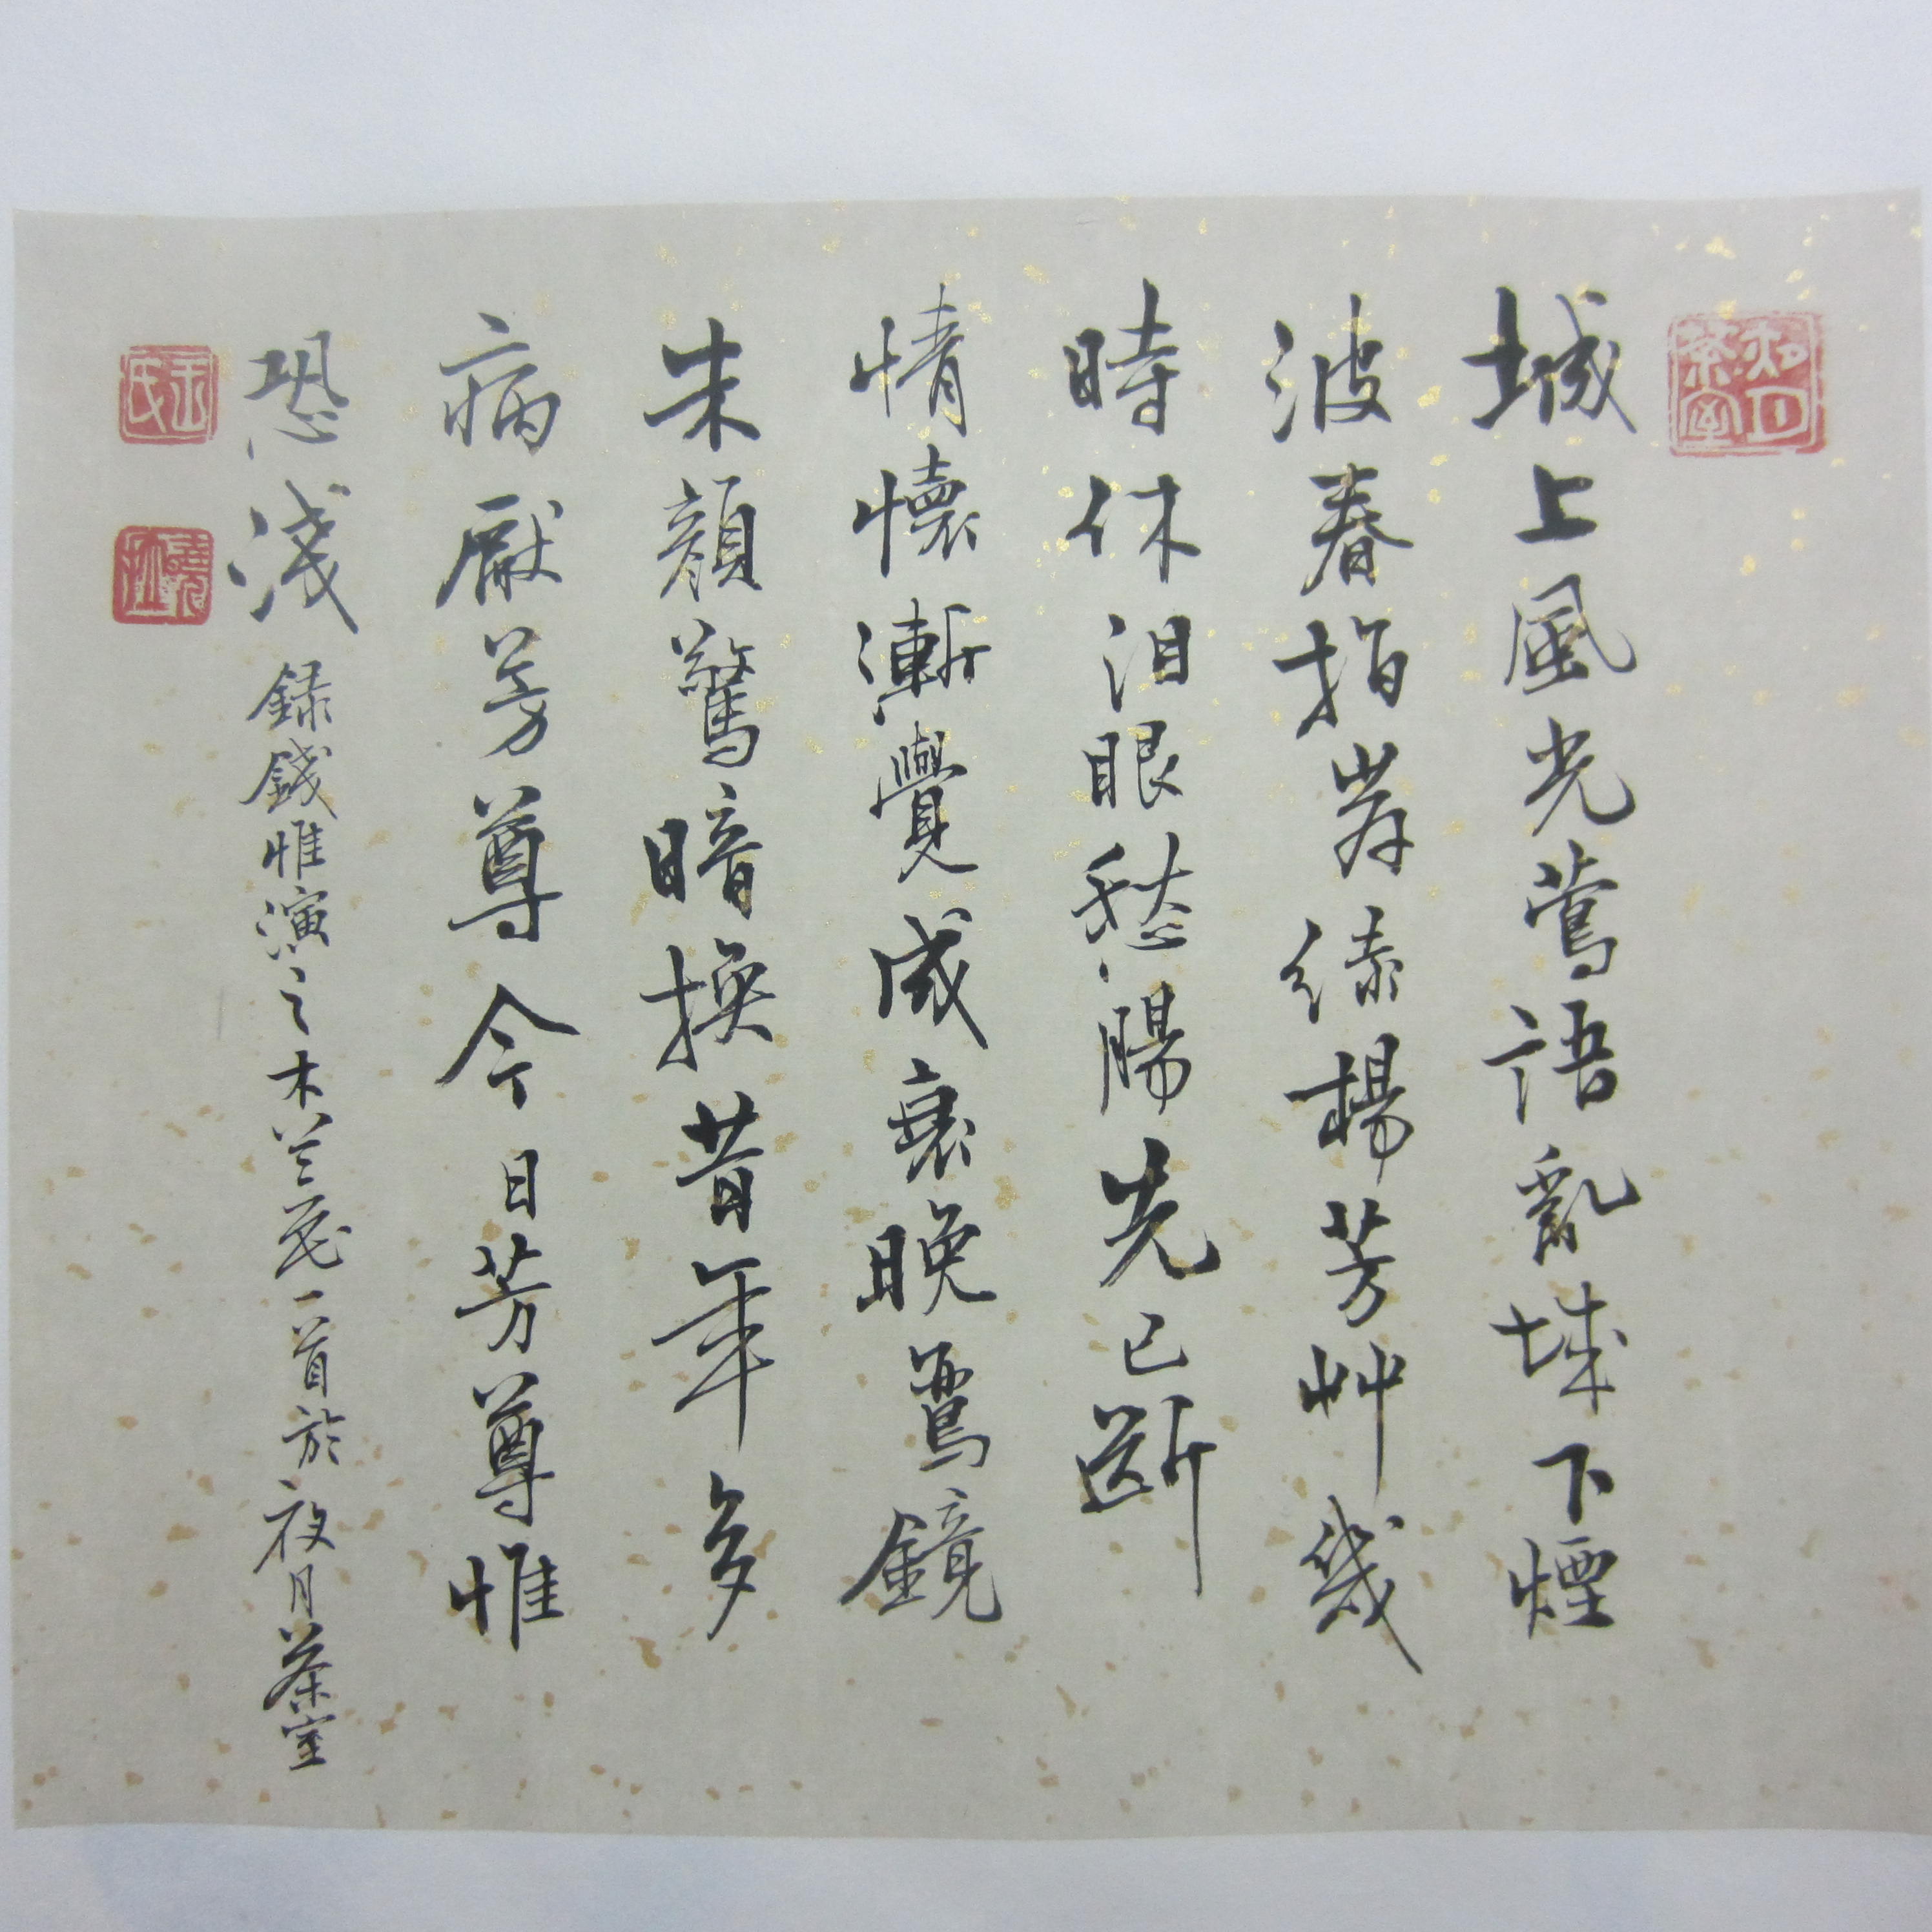 城上風光鶯語亂城下煙
波春拍岸綠楊芳艸幾
時休泪眼愁腸先已斷
情懷漸覺成衰晚鸞鏡
朱顏驚暗換昔年多
病厭芳尊今日芳尊惟
恐淺
錄錢惟演之木兰花一首於夜月茶室